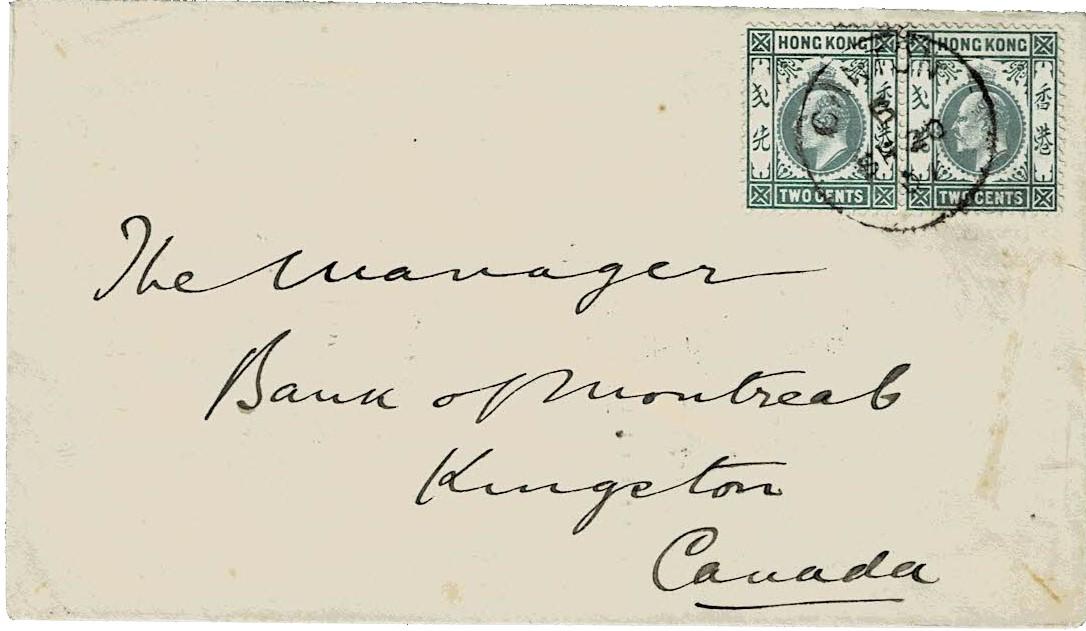 HONG KONG HONG KONG
弍先 香港 弍先 香港
TWO CENTS TWO CENTS
The Manager
Bank of Montreal
Kingston
Canada